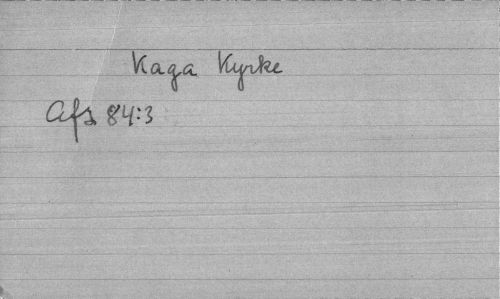 Kaga Kyrke
Afs 84:3